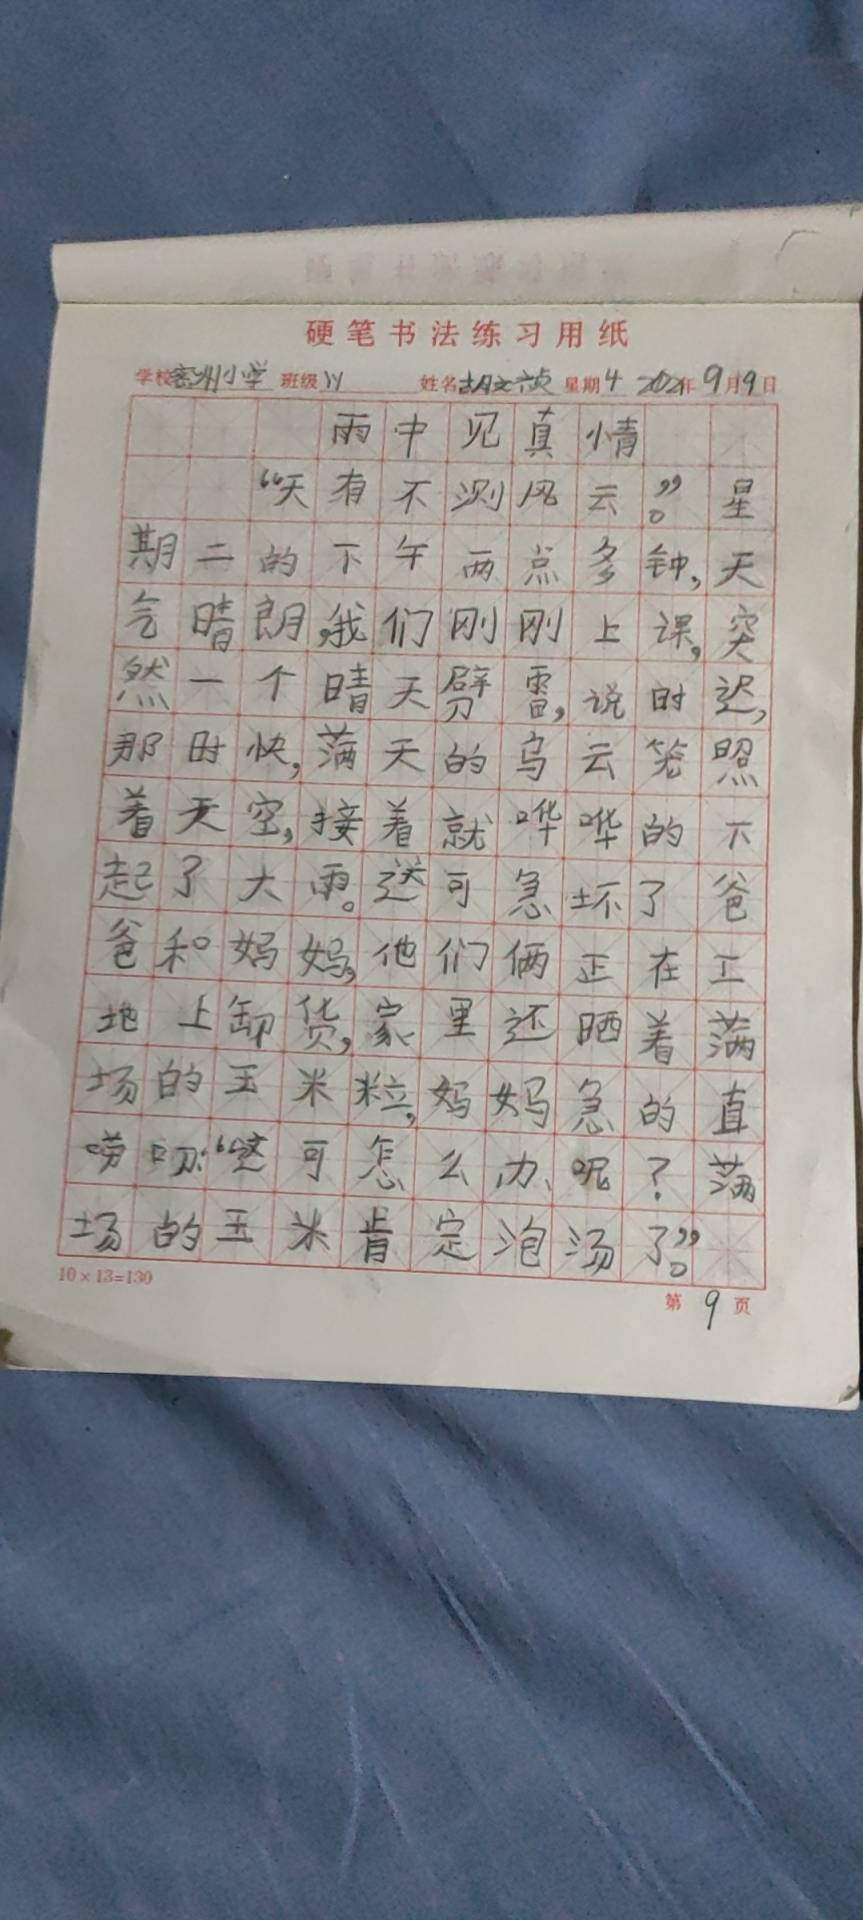 硬笔书法练习用纸
学校密州小学 班级 姓名胡文贞 星期4 2021年9月9日
雨中见真情
“天有不测风云”。星
期二的下午两点多钟,天
气晴朗,我们刚刚上课,突
然一个晴天劈雷,说时迟,
那时快,满天的乌云笼照
着天空,接着就哗哗的下
起了大雨。这可急坏了爸
爸和妈妈,他们俩正在工
地上卸货,家里还晒着满
场的玉米粒,妈妈急的直
唠叨:“这可怎么办呢?满
场的玉米肯定泡汤了”。
10×13=130
第9页